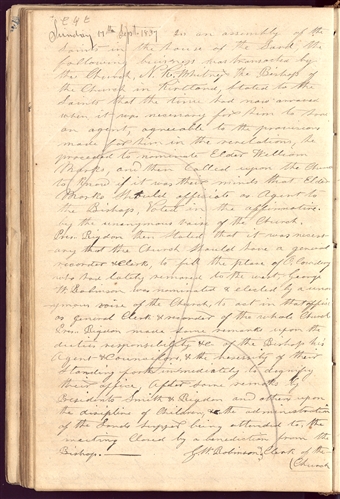 Sunday 17th Sept. 1837 In an assembly of the
Saints in the house of the Lord, the
following business was transacted by
the Church. N. K. Whitney the Bishop of
the Church in Kirtland, Stated to the
Saints that the time had now arrived
when it was necessary for him to have
an agent, agreeable to the provisions
made for him in the revelations, he
proceeded to nominate Elder William
Marks, and then Called upon the Church
to know if it was their minds that Elder
Marks Should officiate as Agent to
the Bishop, Voted in the affirmative
by the unanymous voice of the Church.
Pres. Rigdon then stated that it was neces-
sary that the Church Should have a general
recorder & Clerk, to fill the place of O. Cowdery
who has lately removed to the west. George
W. Robinson was nominated & elected by a unan-
ymous voice of the Church, to act in that office
as general Clerk & recorder of the whole Church
Pres. Rigdon made some remarks upon the
duties responsibility &c of the Bishop his
Agent & Councellors, & the necessity of their
Standing forth immediately to dignify
their office, After some remarks by
Presidents Smith & Rigdon and others upon
the discipline of Children, & the administration
of the Lords Supper being attended to, the
meeting Closed by a benediction from the
Bishop.
G. W. Robinson, Clerk of the
Church